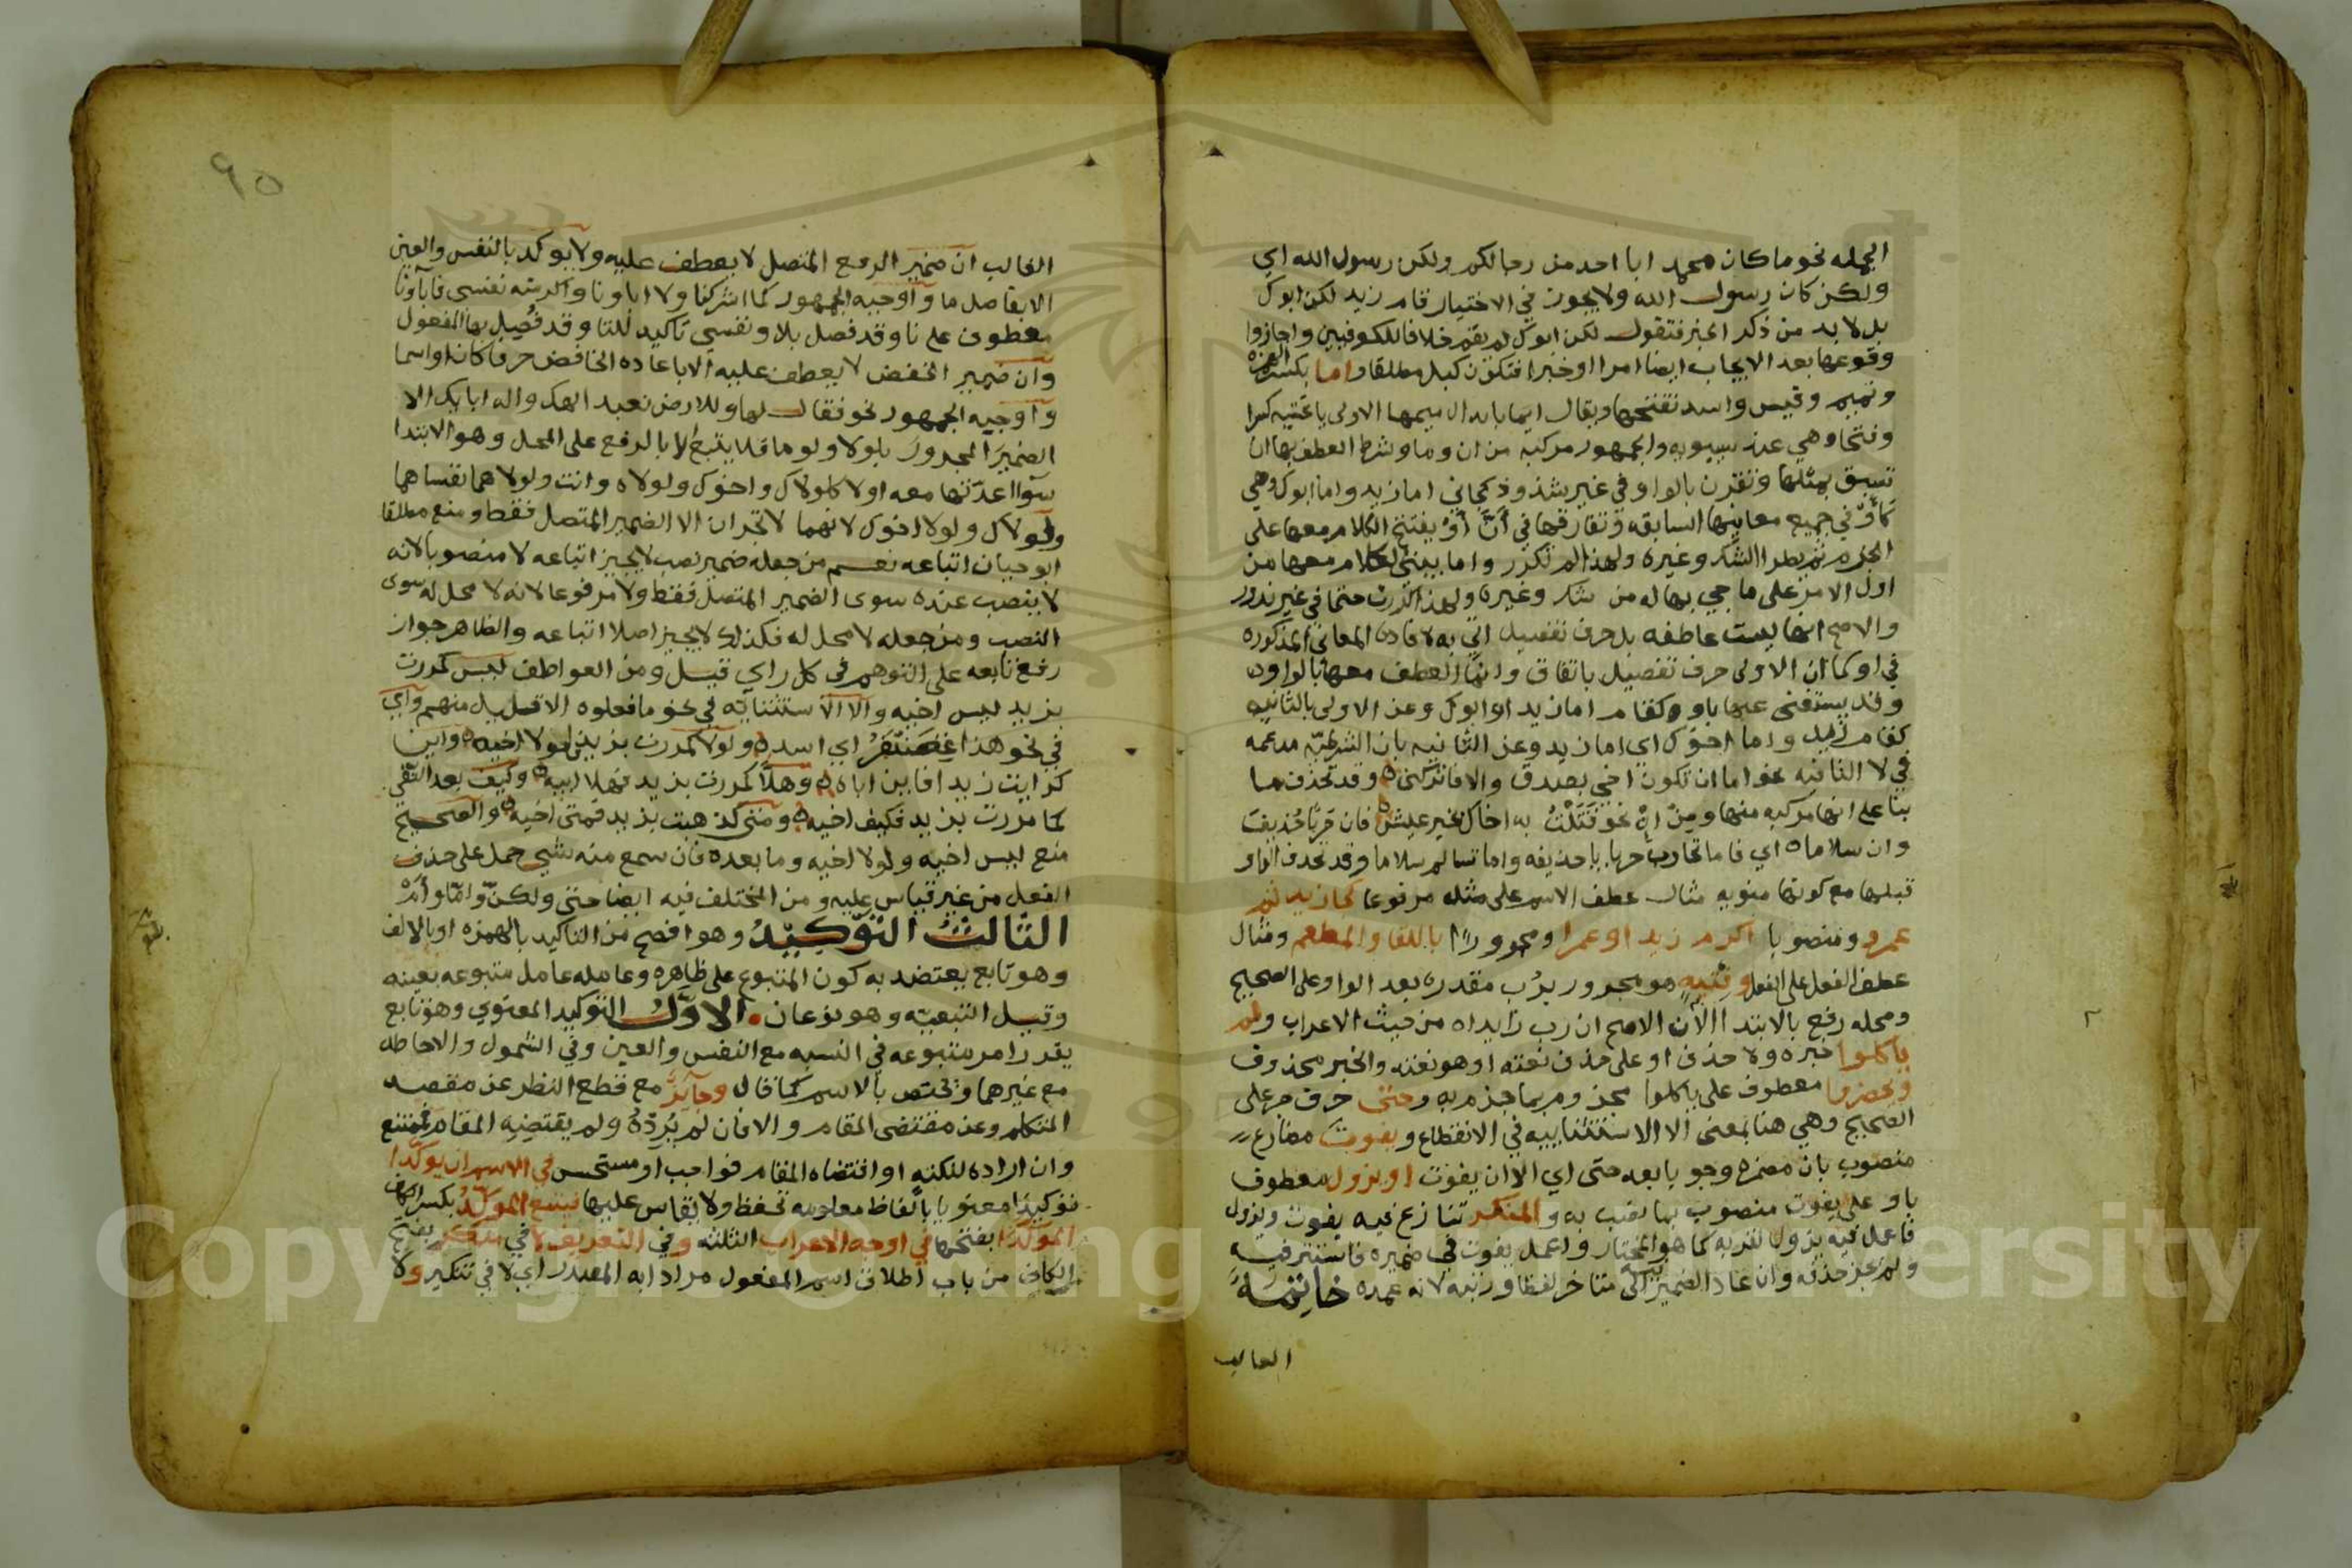 الجمله نحو ما كان محمد ابا احد من رجالكم ولكن رسول الله اي
ولكن كان رسول الله ولا يجوز في الاختيار قام زيد لكن ابوك
بل لا بد من ذكر الخبر فتقول لكن ابوك لم يقم خلافا للكوفيين واجازوا
وقوعها بعد الايجاب ايضا امرا او خبرا فتكون كبل مطلقا واما بكسر الهمزه
وتميم وقيس واسد تفتحها ويقال ايما بابدال ميمها الاولى يا غتيه كسرا
وفتحا وهي عند سيبويه والجمهور مركبة من ان وما وشرط العطف بها ان
تسبق بمثلها وتقرن بالواو في غير شذوذ كجاني اما زيد واما ابوك وهي
كأو في جميع معانيها السابقه وتفارقها في أن أو يفتتح الكلام معها على
الجزم ثم يطرا الشك وغيره ولهذا لم تكرر واما يبنى الكلام معها من
اول الامر على ما جي بها له من شك وغيره ولهذا كررت حتما في غير ندور
والاصح انها ليست عاطفه بل حرف تفصيل اتي به لافادة المعاني المذكوره
في او كما ان الاولى حرف تفصيل باتفاق وانما العطف معها بالواو
وقد يستغنى عنها باو كقام اما زيد او ابوك وعن الاولى بالثانيه
كقام زيد واما اخوك اي اما زيد وعن الثانيه بان الشرطيه مدغمه
في لا النافيه نحو اما ان تكون اخي بصدق والا فاتركني وقد تحذف ما
بنا على انها مركبه منها ومن إن نحو
وان سلاما اي فاما تحارب حربا يا حذيفه واما تسالم سلاما وقد تحذف الواو
قبلها مع كونها منويه مثال عطف الاسم على مثله مرفوعا كجا زيد ثم
عمرو ومنصوبا اكرم زيدا او عمرا ومجرورا باللقا والمطعم ومثال
عطف الفعل على الفعل وفتيه هو مجرور برب مقدره بعد الواو على الصحيح
ومحله رفع بالابتدا الآن الاصح ان رب زايده من حيث الاعراب ولم
ياكلوا خبره ولا حذف او على حذف نعته او هو نعته والخبر محذوف
ويحضروا معطوف على ياكلوا مجزوم بما جزم به وحتى حرف جر على
الصحيح وهي هنا بمعنى الا الاستثناييه في الانقطاع ويفوت مضارع
منصوب بان مضمره وجوبا بعد حتى اي الا ان يفوت او يزول معطوف
باو على يفوت منصوب بما نصب به والمنكر تنازع فيه يفوت ويزول
فاعمل فيه يزول لقربه كما هو المختار واعمل يفوت في ضميره فاستتر فيه
ولم يجز حذفه وان عاد الضمير الى متاخر لفظا ورتبه لانه عمده خاتمة
الغالب
٩٥
الغالب ان ضمير الرفع المتصل لا يعطف عليه ولا يوكد بالنفس والعين
الا بفاصل ما واوجبه الجمهور كما اشركنا ولا اباونا والرسته نفسي فاباونا
معطوف على نا وقد فصل بلا ونفسي تاكيد للتا وقد فصل بها المفعول
وان ضمير الخفض لا يعطف عليه الا باعاده الخافض حرفا كان او اسما
واوجبه الجمهور نحو فقال لها وللارض نعبد الهك واله ابايك الا
الضمير المجرور بلولا ولو ما فلا يتبع الا بالرفع على المحل وهو الابتدا
سوا اعدتها معه او لا كلولاك واخوك ولولاه وانت ولولا هما نفساهما
ولولاك ولولا اخوك لانهما لا تجران الا الضمير المتصل فقط ومنع مطلقا
ابو حيان اتباعه نعم من جعله ضمير نصب لا يجيز اتباعه لا منصوبا لانه
لا ينصب عنده سوى الضمير المتصل فقط ولا مرفوعا لانه لا محل له سوى
النصب ومن جعله لا محل له فكذلك لا يجيز اصلا اتباعه والظاهر جواز
رفع تابعه على التوهم في كل راي قيل ومن العواطف ليس كمررت
بزيد ليس اخيه والا الاستثنائيه في نحو ما فعلوه الا قليل منهم واي
في نحو هذا غضنفر اي اسد ولولا كمررت بزيد لولا اخيه واين
كرايت زيدا فاين اباه وهلا كمررت بزيد فهلا ابيه وكيف بعد النفي
كما مررت بزيد فكيف اخيه ومتى كذهبت بزيد فمتى اخيه والصحيح
منع ليس اخيه ولولا اخيه وما بعده فان سمع منه شي حمل على حذف
الفعل من غير قياس عليه ومن المختلف فيه ايضا حتى ولكن واما وأم
الثالث التوكيد وهو افصح من التاكيد بالهمزه او بالالف
وهو تابع يعتضد به كون المتبوع على ظاهره وعامله عامل متبوعه بعينه
وقيل التبعيه وهو نوعان الاول التوكيد المعنوي وهو تابع
يقرر امر متبوعه في النسبه مع النفس والعين وفي الشمول والاحاطه
مع غيرهما ويختص بالاسم كما قال وجائز مع قطع النظر عن مقصد
المتكلم وعن مقتضى المقام والا فان لم يرده ولم يقتضيه المقام فممتنع
وان اراده لنكته او اقتضاه المقام فواجب او مستحسن في الاسم ان يوكدا
توكيدا معنويا بالفاظ معلومه تحفظ ولا يقاس عليها فيتبع الموكد بكسر الكاف
الموكدا بفتحها في اوجه الاعراب الثلثه وفي التعريف لا في منكر بفتح
الكاف من باب اطلاق اسم المفعول مرادا به المصدر اي لا في تنكير ولا